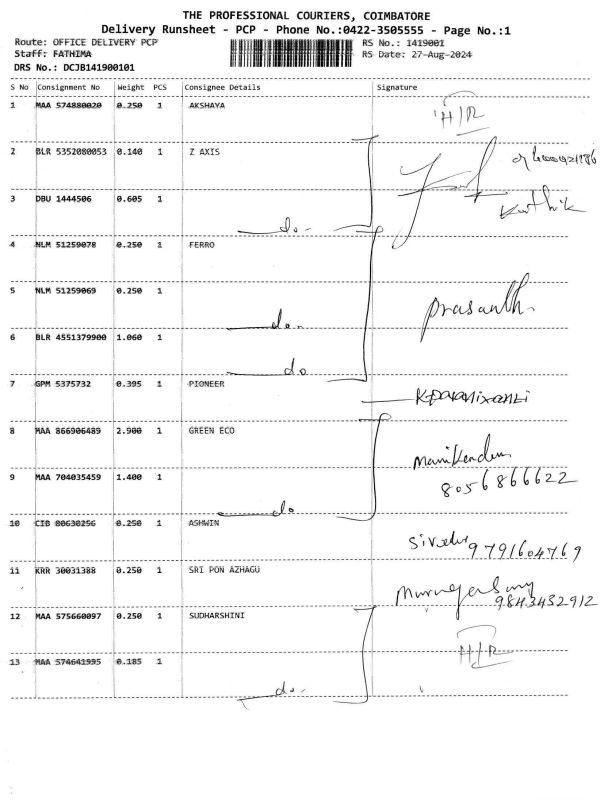 THE PROFESSIONAL COURIERS, COIMBATORE
Delivery Runsheet - PCP - Phone No.:0422-3505555 - Page No.:1
Route: OFFICE DELIVERY PCP RS No.: 1419001
Staff: FATHIMA RS Date: 27-Aug-2024
DRS No.: DCJB141900101
S No Consignment No Weight PCS Consignee Details Signature
1 MAA 574880020 0.250 1 AKSHAYA H/R
2 BLR 5352080053 0.140 1 Z AXIS
Karthik
3 DBU 1444506 0.605 1 do-
4 NLM 51259078 0.250 1 FERRO
5 NLM 51259069 0.250 1 do- Prasanth.
6 BLR 4551379900 1.060 1 do
7 GPM 5375732 0.395 1 PIONEER
8 MAA 866906489 2.900 1 GREEN ECO
Manikandan
8056866622
9 MAA 704035459 1.400 1 do
10 CIB 80630256 0.250 1 ASHWIN 9791604769
11 KRR 30031388 0.250 1 SRI PON AZHAGU
9843432912
12 MAA 575660097 0.250 1 SUDHARSHINI H/R
13 MAA 574641995 0.185 1 do-